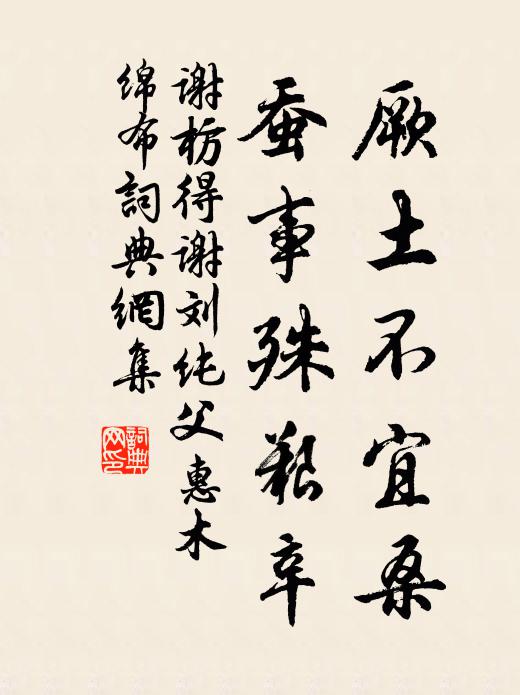 厥土不宜桑
蚕事殊艰辛
谢枋得谢刘纯父惠木
绵布詞典網集
詞典网印